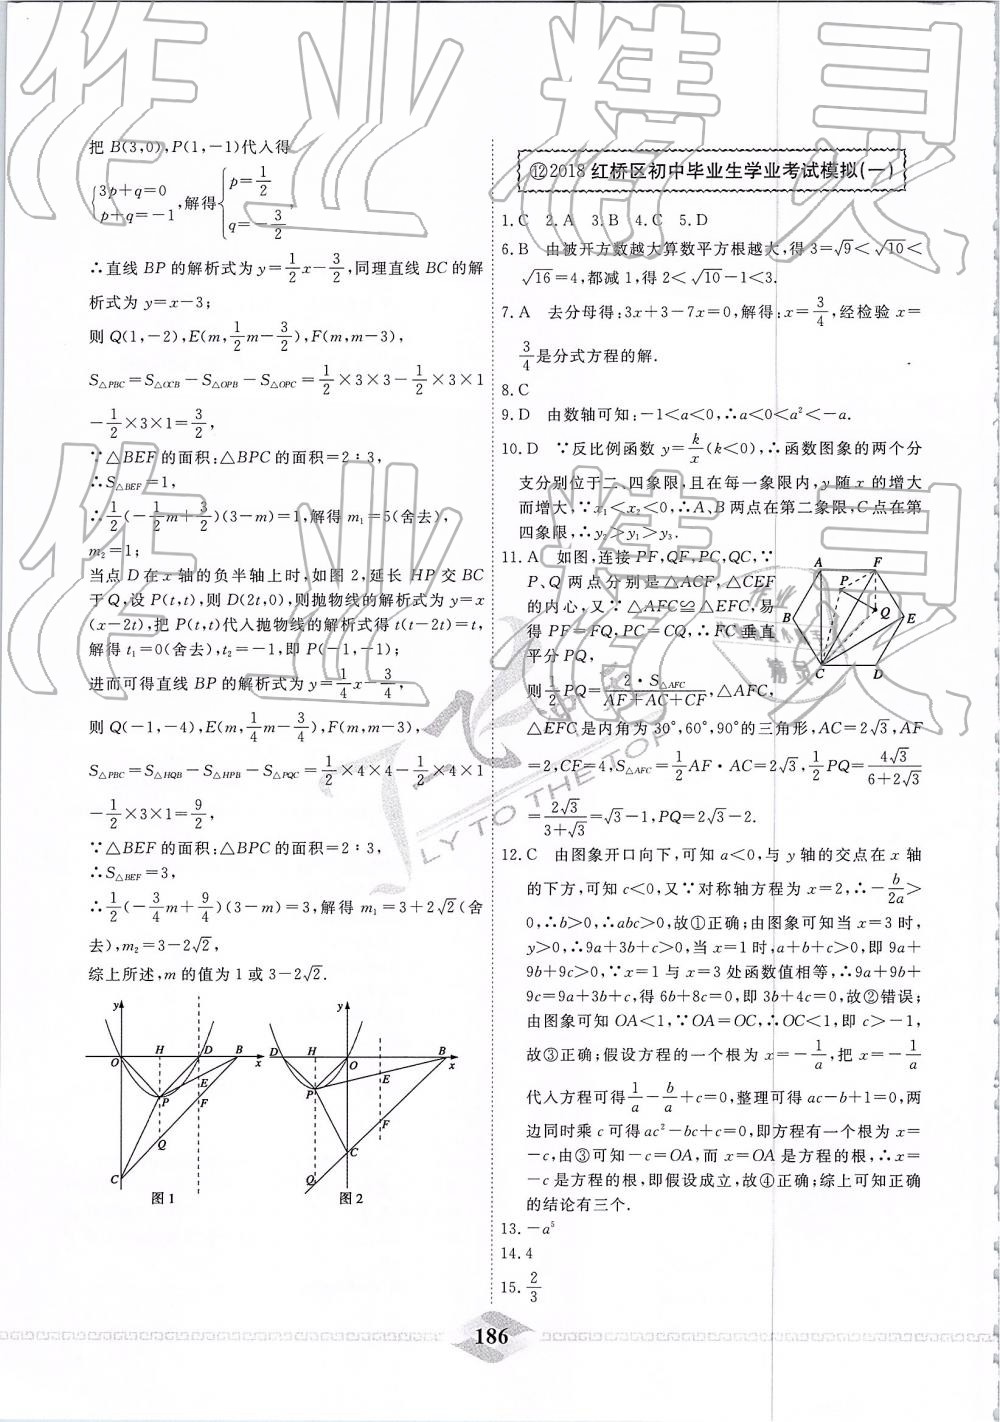 把 B(3,0),P(1,-1)代入得
{3p+q=0 p+q=-1 ,解得{p=1/2 q=-3/2 ,
∴直线 BP 的解析式为 y=1/2x-3/2,同理直线 BC 的解
析式为 y=x-3;
则 Q(1,-2),E(m,1/2m-3/2),F(m,m-3),
S△PBC=S△OCB-S△OPB-S△OPC=1/2×3×3-1/2×3×1
-1/2×3×1=3/2,
∵△BEF 的面积:△BPC 的面积=2:3,
∴S△BEF=1,
∴1/2(-1/2m+3/2)(3-m)=1,解得 m₁=5(舍去),
m₂=1;
当点 D 在 x 轴的负半轴上时,如图 2,延长 HP 交 BC
于 Q,设 P(t,t),则 D(2t,0),则抛物线的解析式为 y=x
(x-2t),把 P(t,t)代入抛物线的解析式得 t(t-2t)=t,
解得 t₁=0(舍去),t₂=-1,即 P(-1,-1);
进而可得直线 BP 的解析式为 y=1/4x-3/4,
则 Q(-1,-4),E(m,1/4m-3/4),F(m,m-3),
S△PBC=S△HQB-S△HPB-S△PQC=1/2×4×4-1/2×4×1
-1/2×3×1=9/2,
∵△BEF 的面积:△BPC 的面积=2:3,
∴S△BEF=3,
∴1/2(-3/4m+9/4)(3-m)=3,解得 m₁=3+2√2(舍
去),m₂=3-2√2,
综上所述,m 的值为 1 或 3-2√2.
y
O H D B x
E
P F
Q
C
图 1
y
D H O B x
E
P
F
C
Q
图 2
⑫2018 红桥区初中毕业生学业考试模拟(一)
1.C 2.A 3.B 4.C 5.D
6.B 由被开方数越大算数平方根越大,得 3=√9<√10<
√16=4,都减 1,得 2<√10-1<3.
7.A 去分母得:3x+3-7x=0,解得:x=3/4,经检验 x=
3/4是分式方程的解.
8.C
9.D 由数轴可知:-1<a<0,∴a<0<a²<-a.
10.D ∵反比例函数 y=k/x(k<0),∴函数图象的两个分
支分别位于二、四象限,且在每一象限内,y 随 x 的增大
而增大,∵x₁<x₂<0,∴A、B 两点在第二象限,C 点在第
四象限,∴y₂>y₁>y₃.
11.A 如图,连接 PF,QF,PC,QC,∵
P、Q 两点分别是△ACF,△CEF
的内心,又∵△AFC≌△EFC,易
得 PF=FQ,PC=CQ,∴FC 垂直
平分 PQ,
则1/2PQ=2·S△AFC/AF+AC+CF,△AFC,
A F
P
B Q E
C D
△EFC 是内角为 30°,60°,90°的三角形,AC=2√3,AF
=2,CF=4,S△AFC=1/2AF·AC=2√3,1/2PQ=4√3/6+2√3
=2√3/3+√3=√3-1,PQ=2√3-2.
12.C 由图象开口向下,可知 a<0,与 y 轴的交点在 x 轴
的下方,可知 c<0,又∵对称轴方程为 x=2,∴-b/2a>
0,∴b>0,∴abc>0,故①正确;由图象可知当 x=3 时,
y>0,∴9a+3b+c>0,当 x=1 时,a+b+c>0,即 9a+
9b+9c>0,∵x=1 与 x=3 处函数值相等,∴9a+9b+
9c=9a+3b+c,得 6b+8c=0,即 3b+4c=0,故②错误;
由图象可知 OA<1,∵OA=OC,∴OC<1,即 c>-1,
故③正确;假设方程的一个根为 x=-1/a,把 x=-1/a
代入方程可得1/a-b/a+c=0,整理可得 ac-b+1=0,两
边同时乘 c 可得 ac²-bc+c=0,即方程有一个根为 x=
-c,由③可知-c=OA,而 x=OA 是方程的根,∴x=
-c 是方程的根,即假设成立,故④正确;综上可知正确
的结论有三个.
13.-a⁵
14.4
15.2/3
186
作业精灵
作业精灵
FLY TO THE TOP